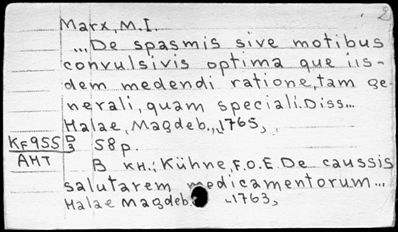 2
Marx, M.I.
...De spasmis sive motibus
convulsivis optima que iis-
dem medendi ratione, tam ge-
nerali, quam speciali. Diss...
Halae, Magdeb., 1765,
KF955 D/3 58 p.
АНТ
В кн.: Kühne, F.O.E. De caussis
salutarem medicamentorum...
Halae Magdeb. 1763,